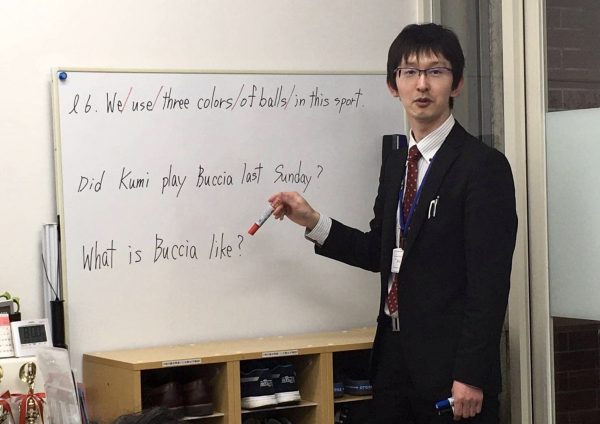 l6. We/use/three colors/of balls/in this sport.
Did Kumi play Buccia last Sunday?
What is Buccia like?